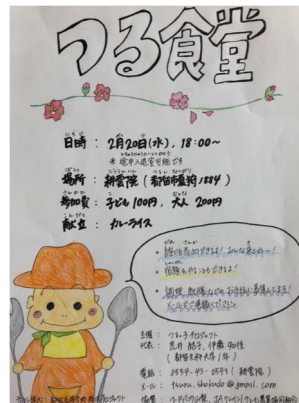 つる食堂
日時 : 2月20日(水)、18:00〜
※ 途中入退室可能です
場所 : 耕雲院 (都留市夏狩1884)
参加費 : 子ども100円、大人 200円
献立 : カレーライス
誰でも参加できるよ! みんな来てね〜!
宿題もやることもできるよ!
調理、配膳などのお手伝い募集してます!
メールでご連絡ください。
主催 : つるっ子プロジェクト
代表 :
(都留文科大学1年)
電話 : 0554-43- (耕雲院)
メール : tsuru.shokudo@gmail.com